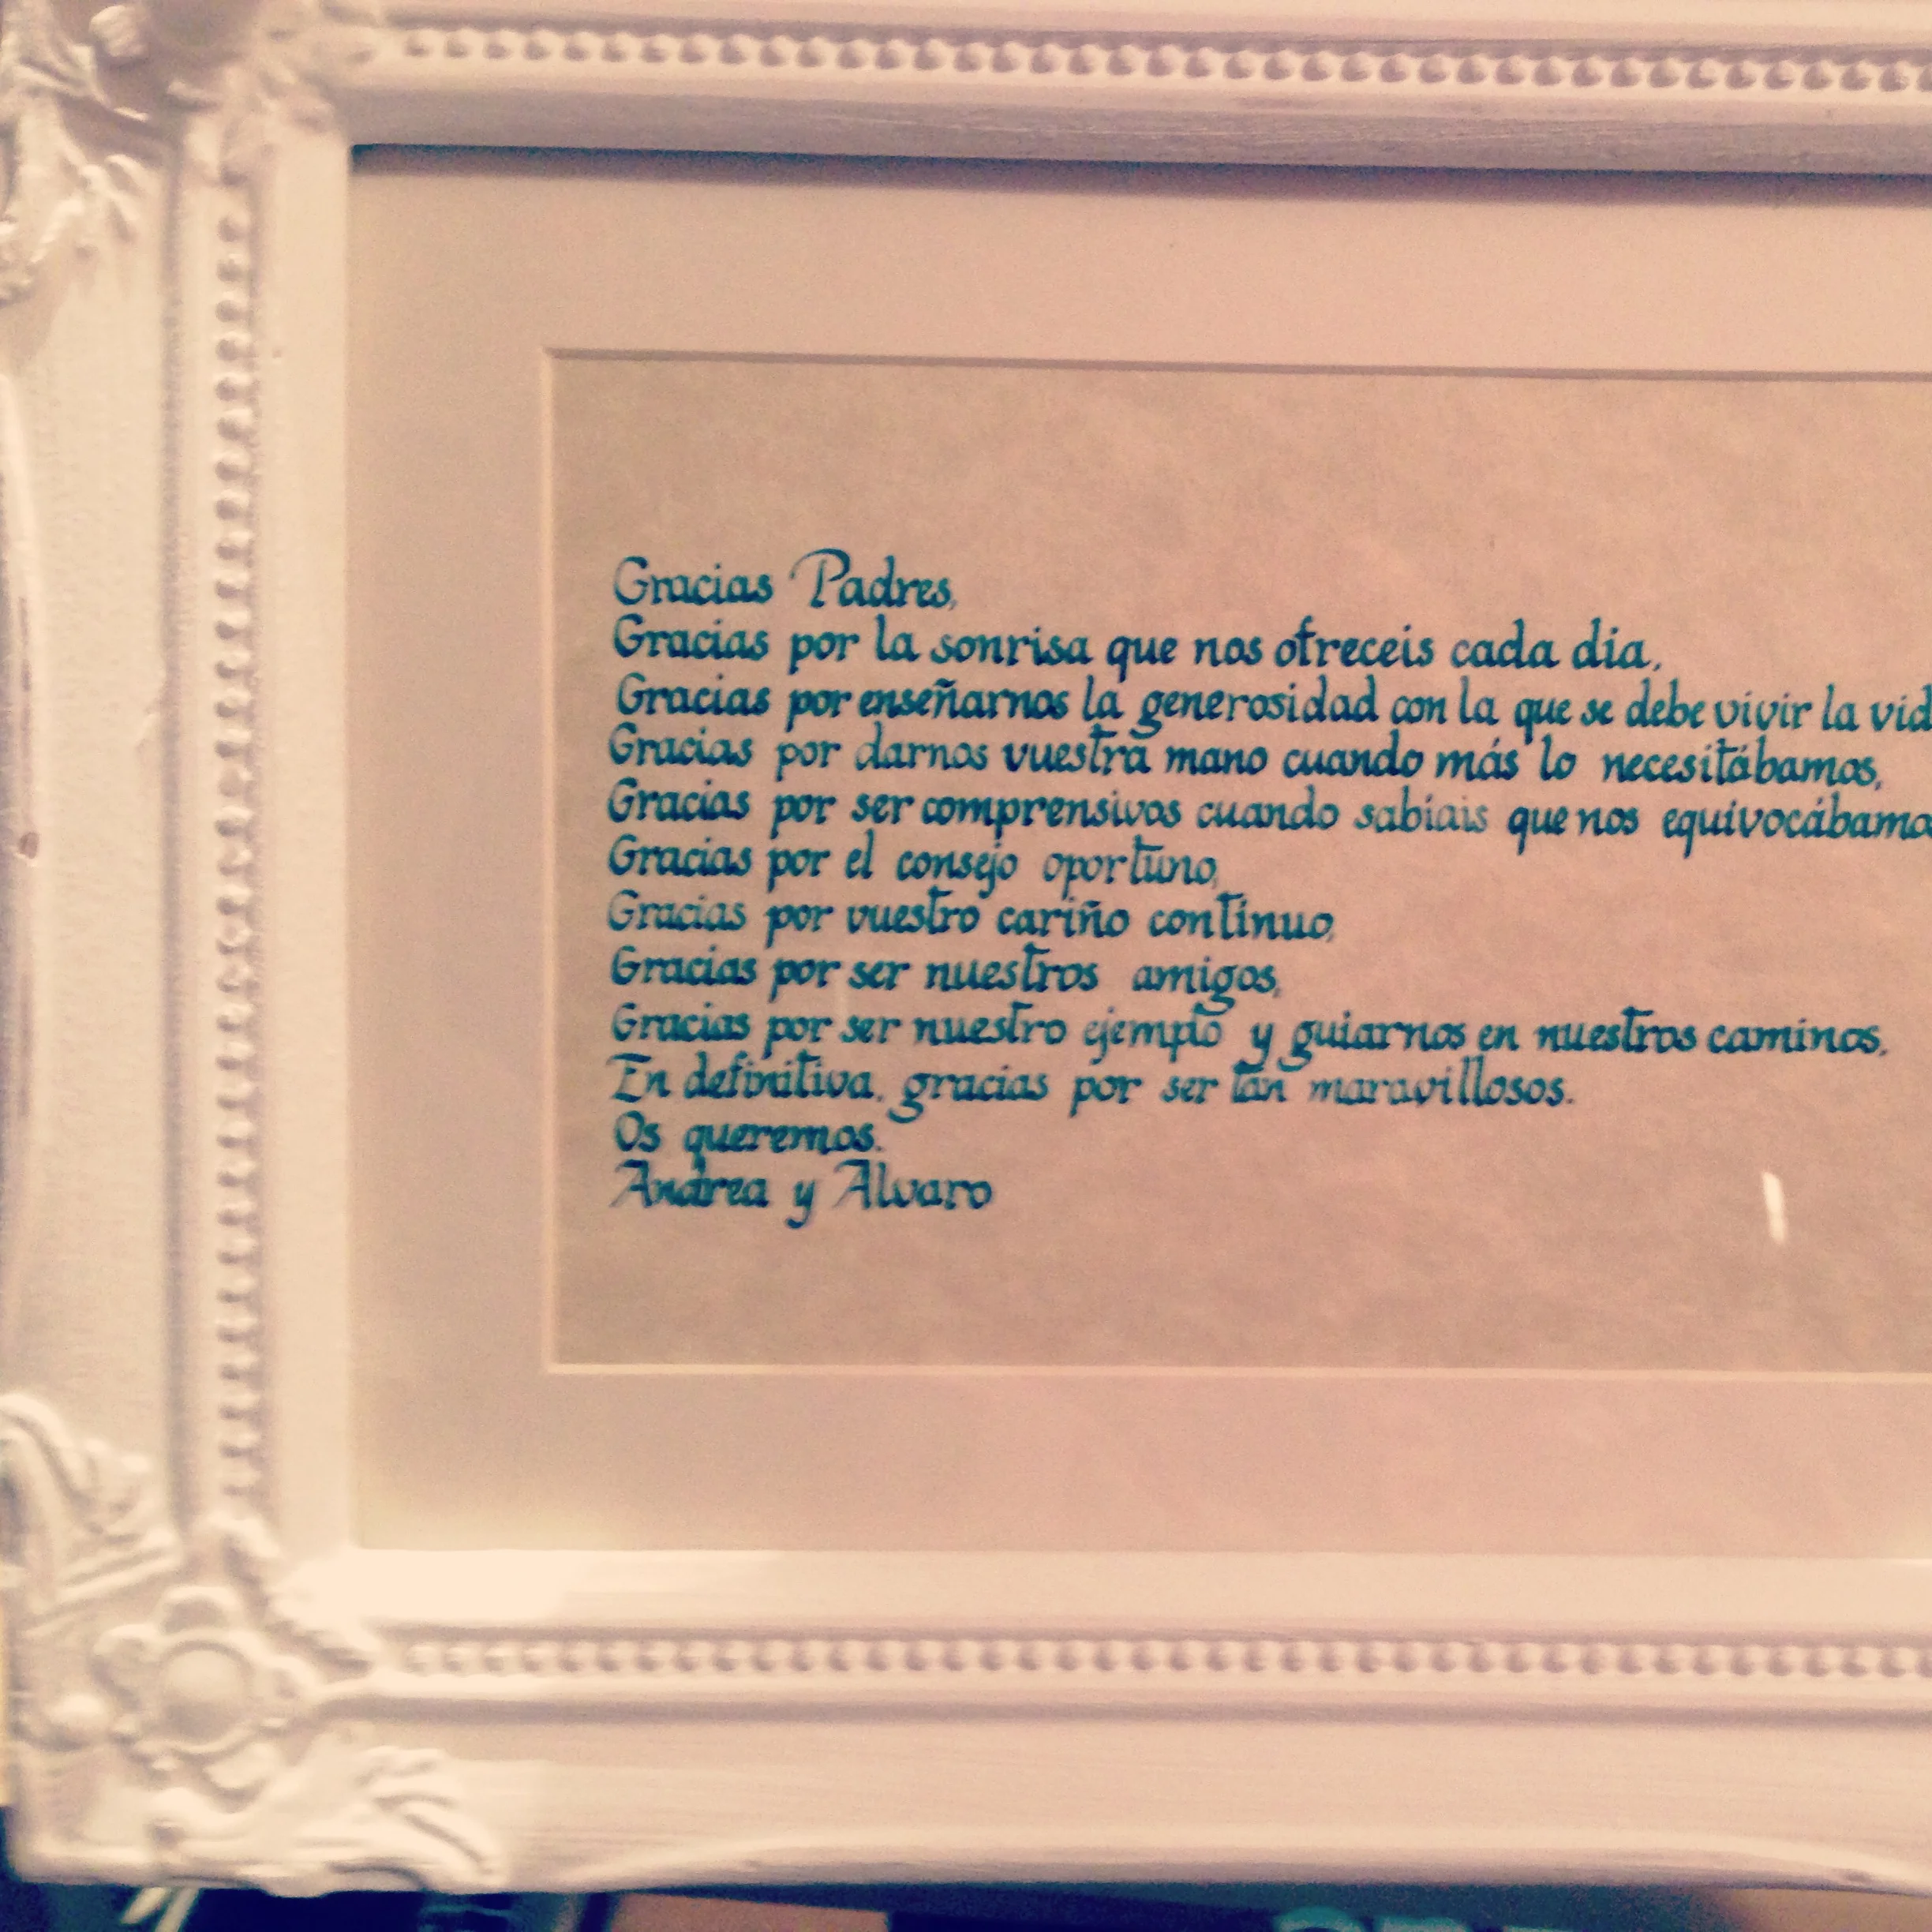 Gracias Padres,
Gracias por la sonrisa que nos ofreceis cada dia,
Gracias por enseñarnos la generosidad con la que se debe vivir la vid
Gracias por darnos vuestra mano cuando más lo necesitábamos,
Gracias por ser comprensivos cuando sabíais que nos equivocábamo
Gracias por el consejo oportuno,
Gracias por vuestro cariño continuo,
Gracias por ser nuestros amigos,
Gracias por ser nuestro ejemplo y guiarnos en nuestros caminos.
En definitiva, gracias por ser tan maravillosos.
Os queremos.
Andrea y Alvaro